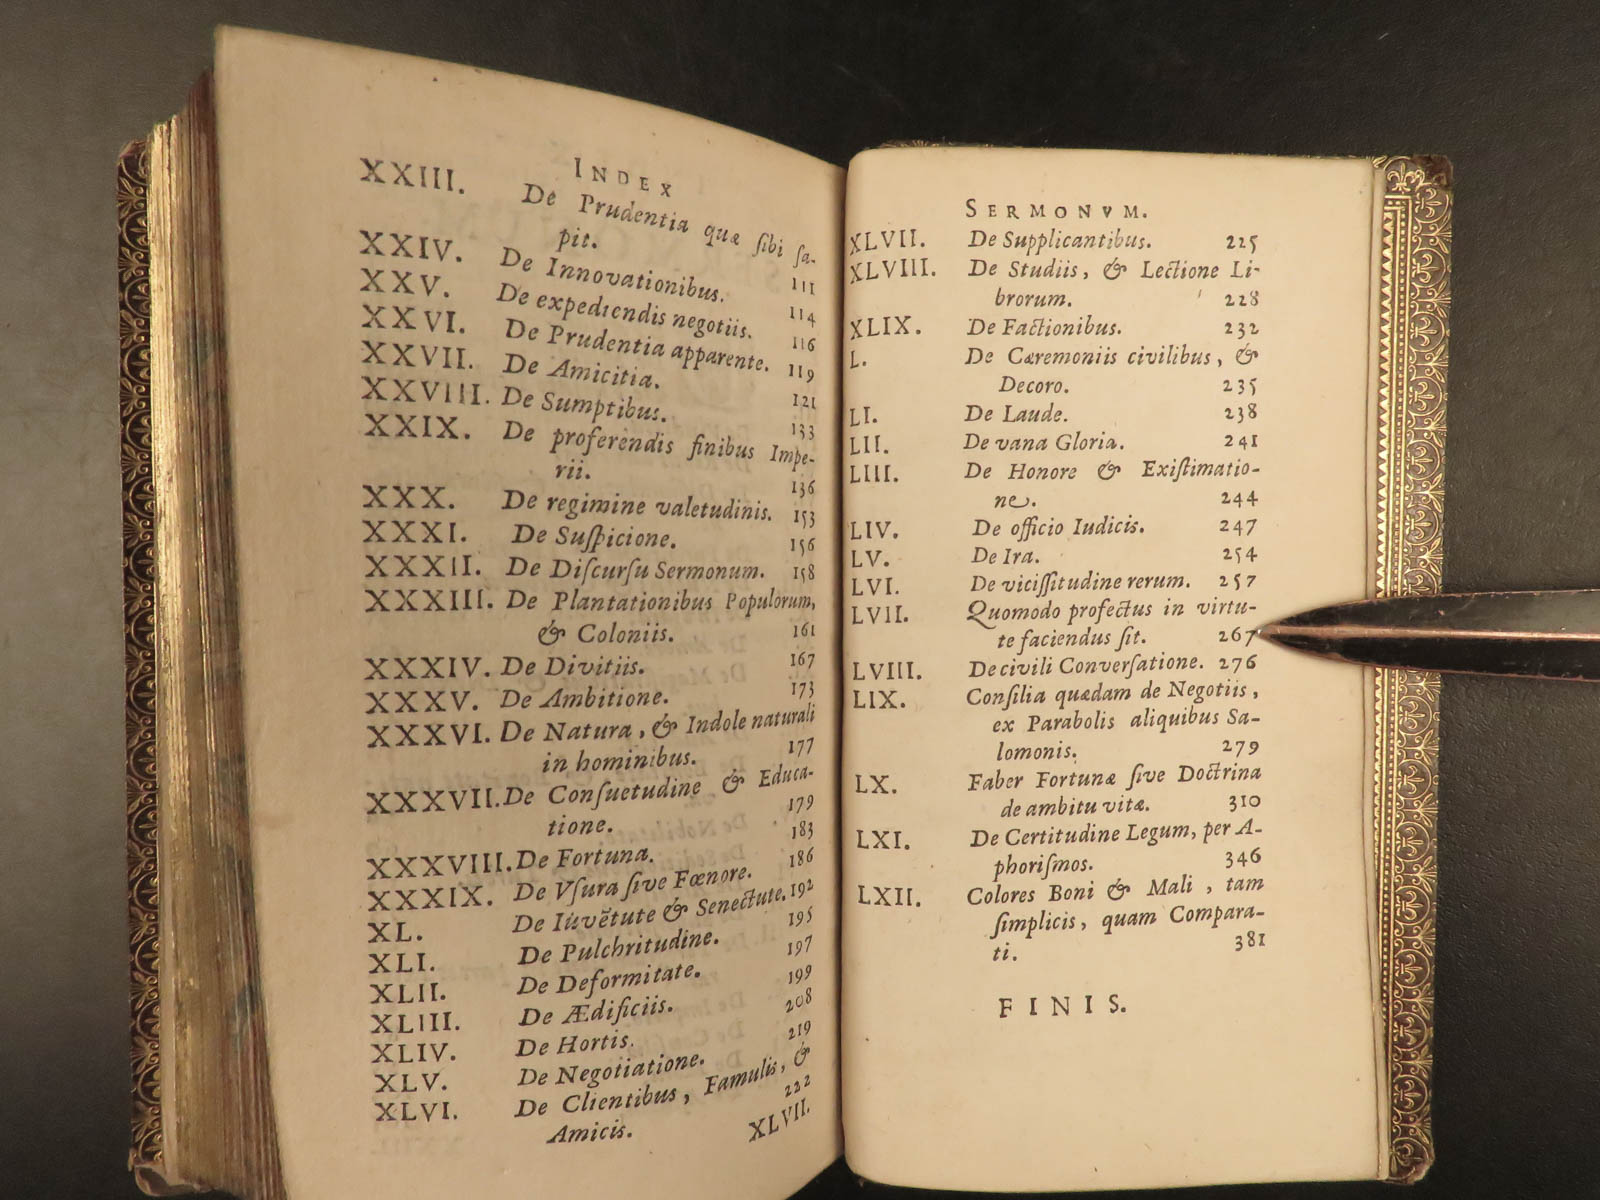 INDEX
XXIII. De Prudentia quæ ſibi ſa-
pit. 111
XXIV. De Innovationibus. 114
XXV. De expediendis negotiis. 116
XXVI. De Prudentia apparente. 119
XXVII. De Amicitia. 121
XXVIII. De Sumptibus. 133
XXIX. De proferendis finibus Impe-
rii. 136
XXX. De regimine valetudinis. 153
XXXI. De Suſpicione. 156
XXXII. De Diſcurſu Sermonum. 158
XXXIII. De Plantationibus Populorum,
& Coloniis. 161
XXXIV. De Divitiis. 167
XXXV. De Ambitione. 173
XXXVI. De Natura, & Indole naturali
in hominibus. 177
XXXVII. De Conſuetudine & Educa-
tione. 179
XXXVIII. De Fortuna. 183
XXXIX. De Vſura ſive Fœnore. 186
XL. De Iuvētute & Senectute. 192
XLI. De Pulchritudine. 195
XLII. De Deformitate. 197
XLIII. De Ædificiis. 199
XLIV. De Hortis. 208
XLV. De Negotiatione. 219
XLVI. De Clientibus, Famulis, &
Amicis. 222
XLVII.
SERMONVM.
XLVII. De Supplicantibus. 225
XLVIII. De Studiis, & Lectione Li-
brorum. 228
XLIX. De Factionibus. 232
L. De Cæremoniis civilibus, &
Decoro. 235
LI. De Laude. 238
LII. De vana Gloria. 241
LIII. De Honore & Exiſtimatio-
ne. 244
LIV. De officio Iudicis. 247
LV. De Ira. 254
LVI. De viciſſitudine rerum. 257
LVII. Quomodo profectus in virtu-
te faciendus ſit. 267
LVIII. De civili Converſatione. 276
LIX. Conſilia quædam de Negotiis,
ex Parabolis aliquibus Sa-
lomonis. 279
LX. Faber Fortunæ ſive Doctrina
de ambitu vitæ. 310
LXI. De Certitudine Legum, per A-
phoriſmos. 346
LXII. Colores Boni & Mali, tam
ſimplicis, quam Compara-
ti. 381
FINIS.